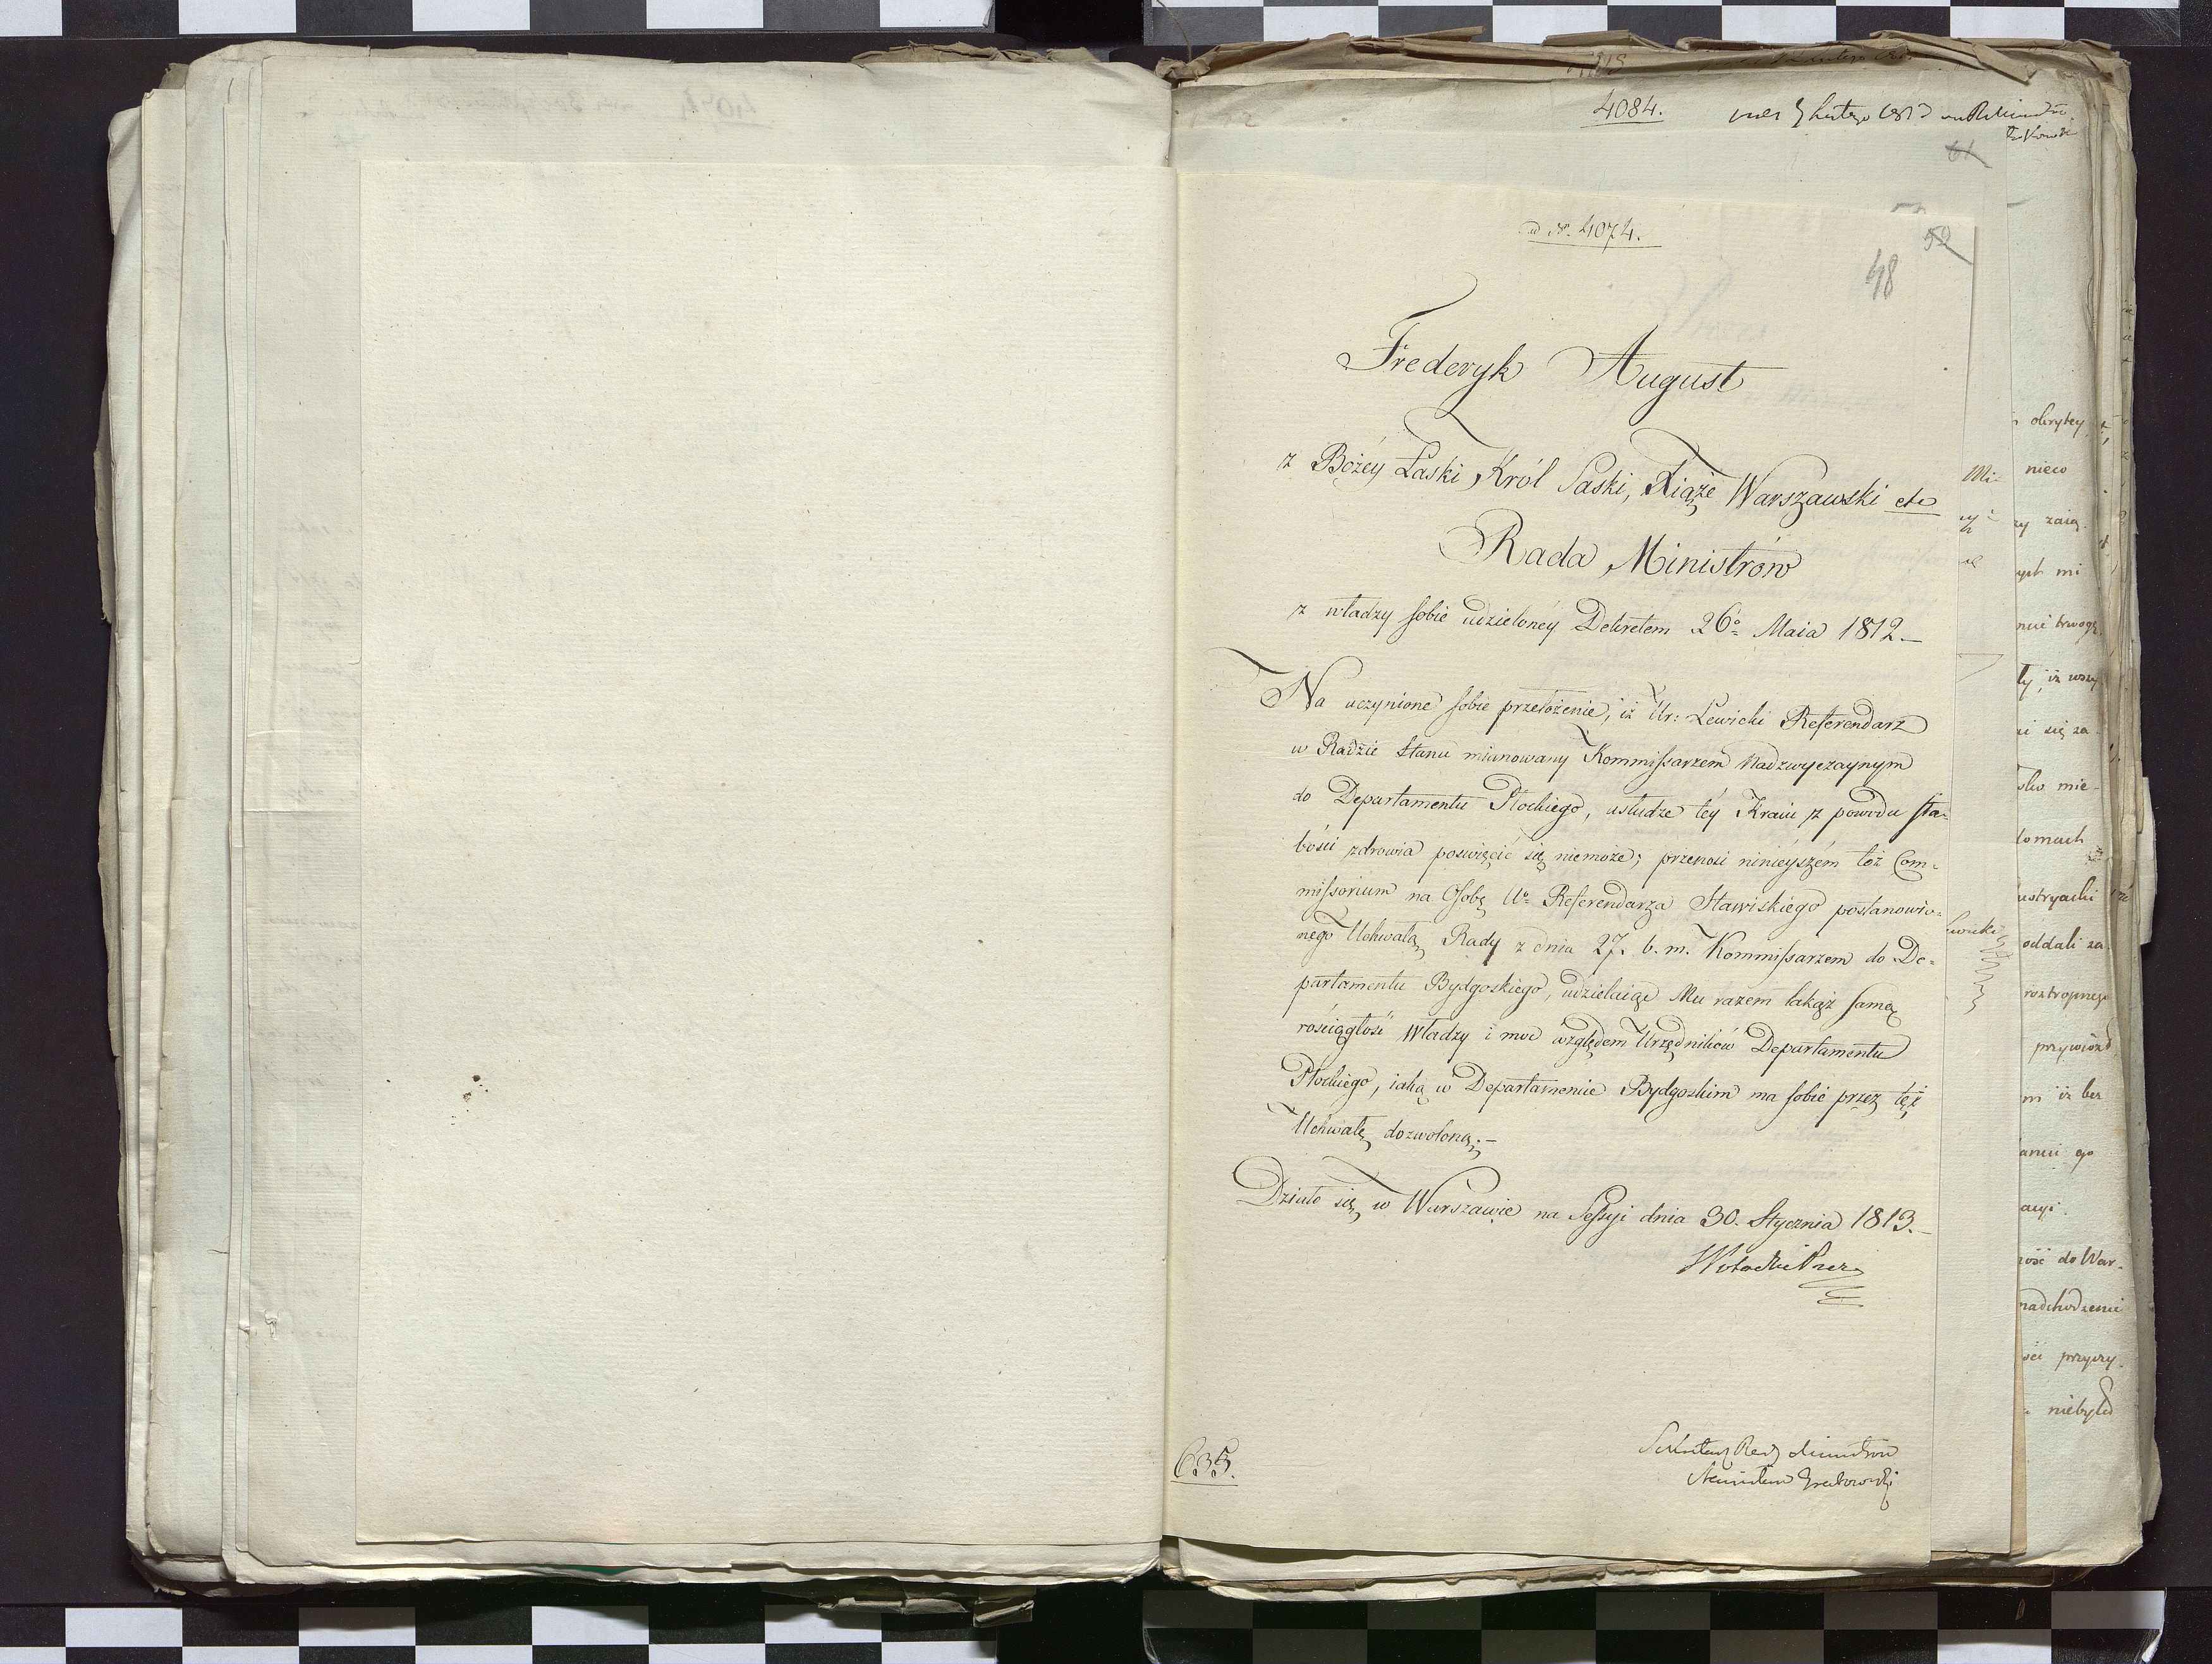 4084.
ad N. 4074.
52
48
Frederyk August
z Bożéy Łaski Król Saski, Xiążę Warszawski etc
Rada Ministrów
z władzy sobie udzielonéy Dekretem 26º Maia 1812.–
Na uczynione sobie przełożenie, iż Ur: Lewicki Referendarz
w Radzie Stanu mianowany Kommissarzem Nadzwyczaynym
do Departamentu Płockiego, usłudze téy Kraiu z powodu sła-
bości zdrowia poswięcić się niemoże; przenosi ninieyszém toż Com-
missorium na Osobę Uº Referendarza Stawiskiego postanowio-
nego Uchwałą Rady z dnia 27. b. m. Kommissarzem do De-
partamentu Bydgoskiego, udzielaiąc Mu razem takąż samą
rościągłość Władzy i moc względem Urzędników Departamentu
Płockiego, iaką w Departamencie Bydgoskim ma sobie przez tęż
Uchwałę dozwoloną.–
Działo się w Warszawie na Sessyi dnia 30. Stycznia 1813.–
635.
Sekretarz Rady Ministrów
Stanisław Grabowski
okrytey
nieco
zaią
mi
trwogę
iż wszy
się za
mie-
domach
oddali za
roztropnego
iż bez
do War-
nadchodzenie
przyczy-
niebyło